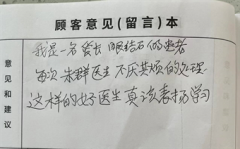 顾客意见(留言)本
意见和建议
我是一名
结石的患者
朱群医生不厌其烦的处理
这样的好医生真该表扬学习